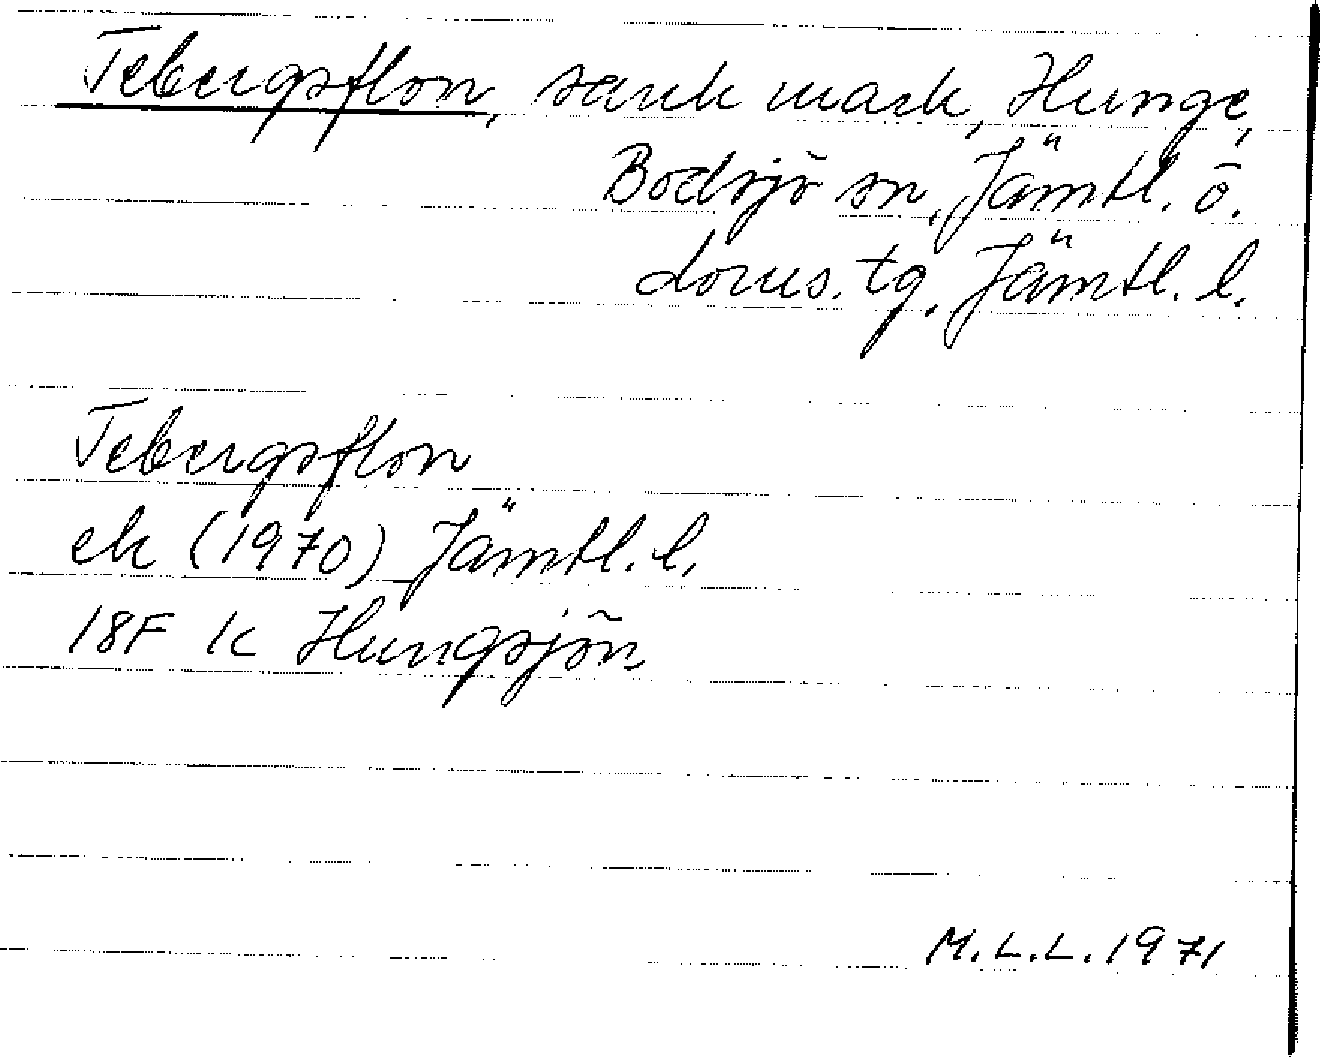 Tebergsflon, sank mark, Hunge,
Bodsjö sn, Jämtl. ö.
doms. tg. Jämtl. l.
Tebergsflon
ek (1970) Jämtl. l.
18F 1c Hungsjön
M.L.L. 1971